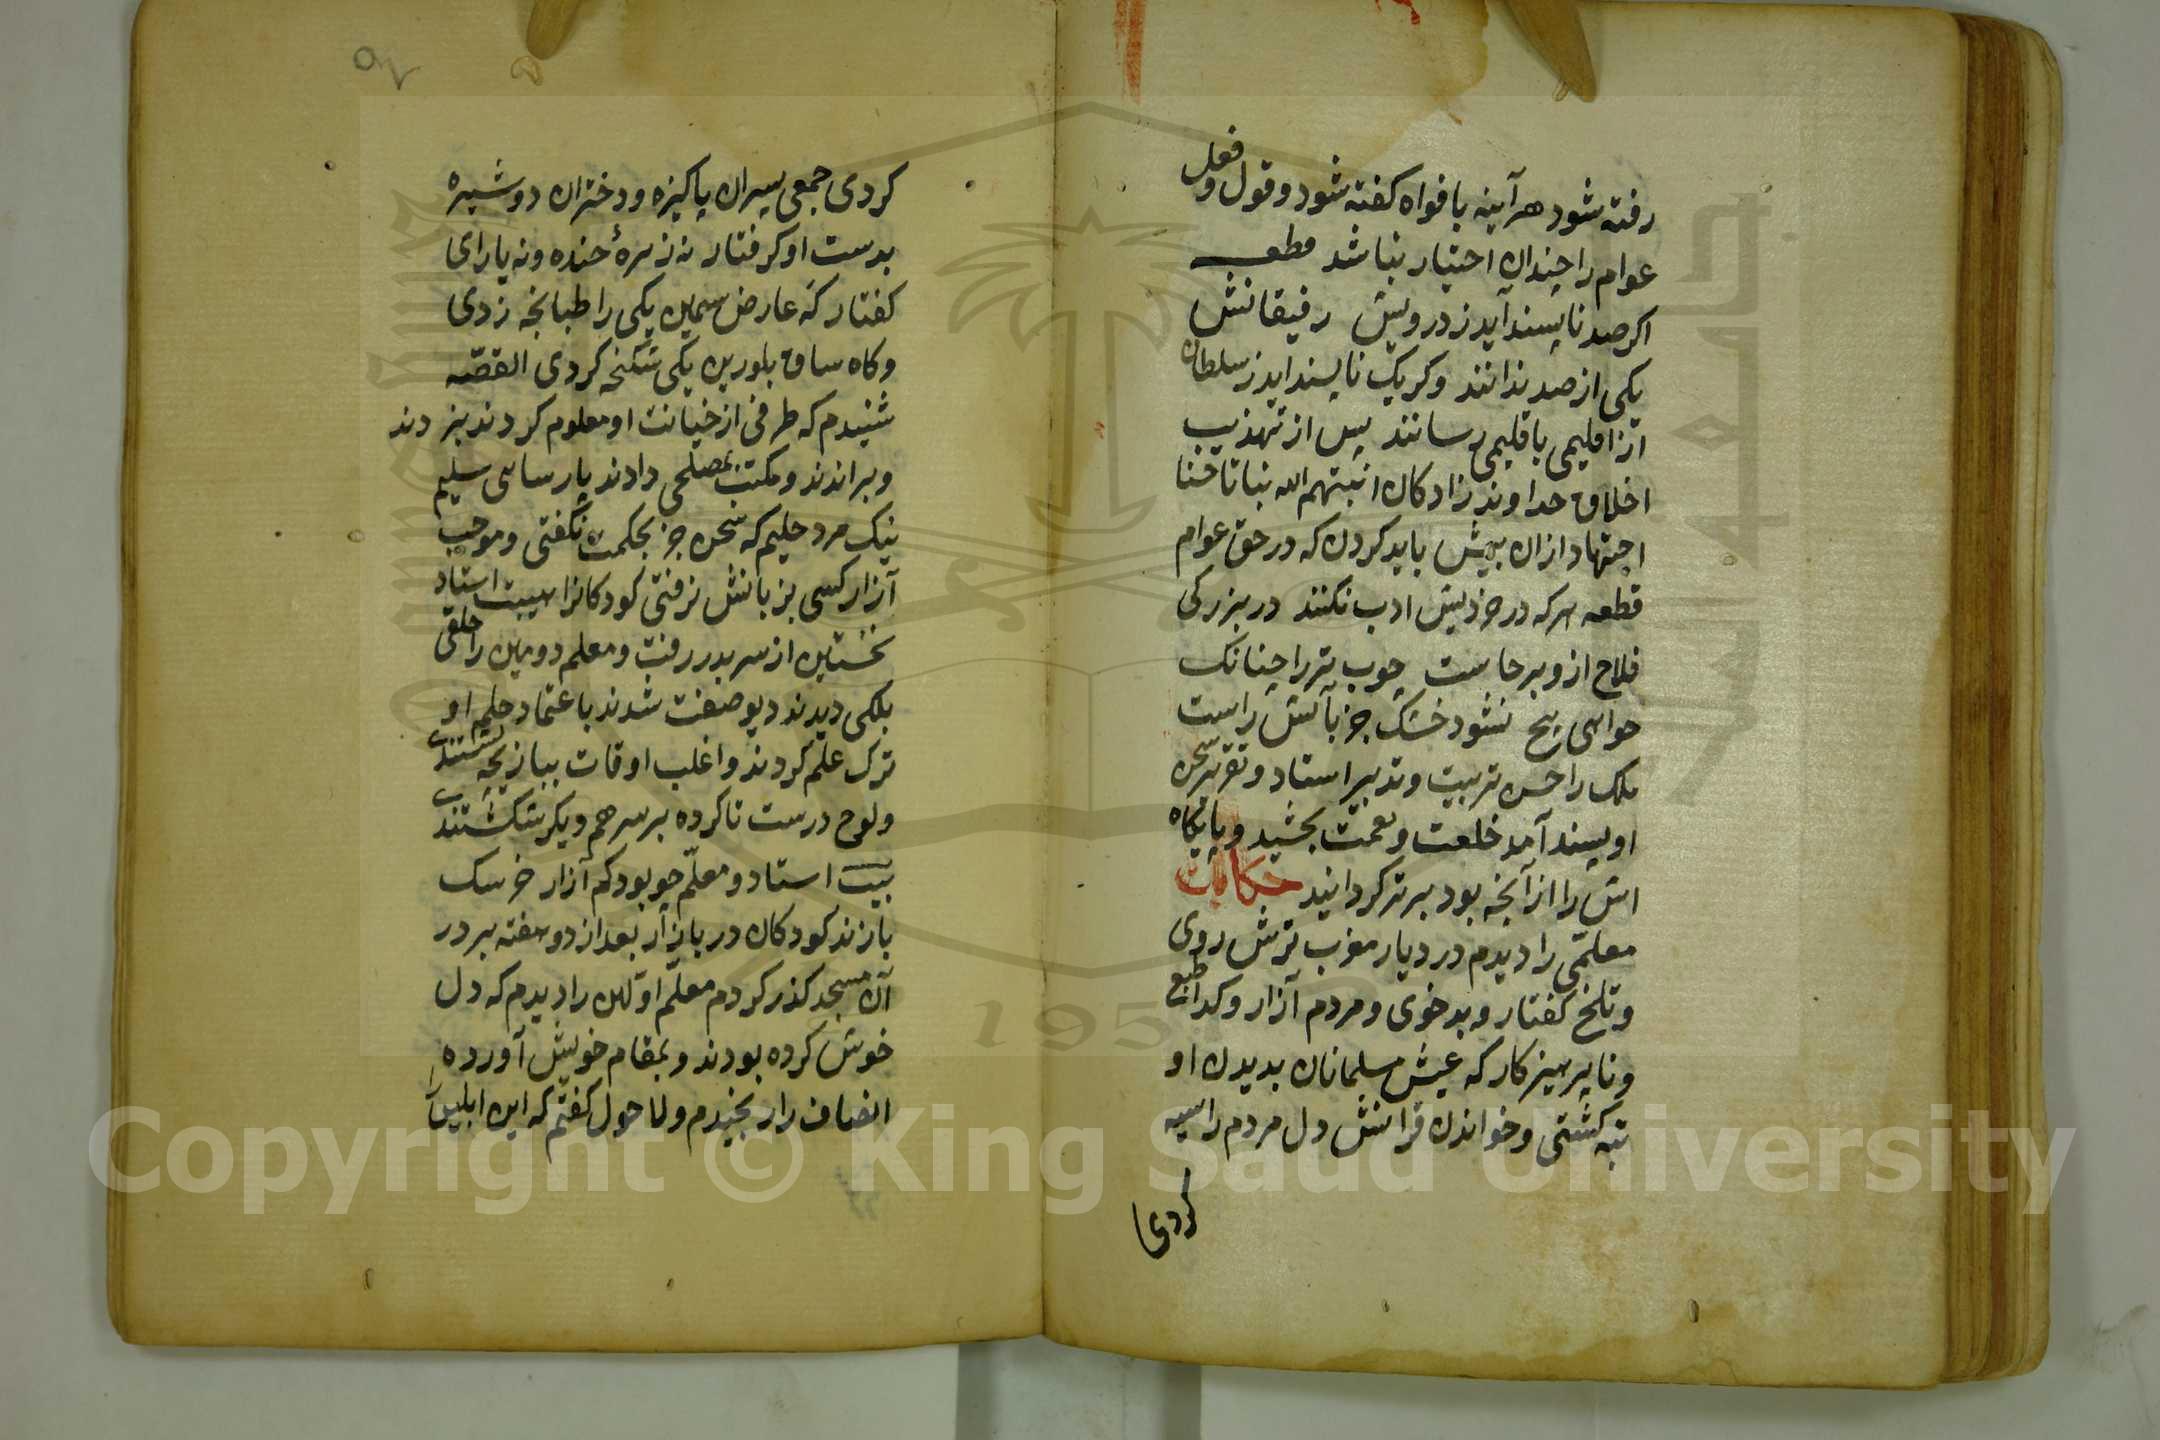 رفته شود هرآینه بافواه کفته شود و قول و فعل
عوام را چندان اعتبار نباشد قطعه
اکر صد ناپسند آید ز درویش رفیقانش
یکی از صد ندانند وکر یک ناپسند اید ز سلطان
از اقلیمی باقلیمی رسانند پس از تهذیب
اخلاق خداوند زادکان انبتهم الله نباتا حسنا
اجتهاد ازان بیش باید کردن که در حق عوام
قطعه هرکه در خردیش ادب نکنند در بزرکی
فلاح ازو برخاست چوب تر را چنانک
خواهی پیچ نشود خشک جز بآتش راست
ملک را حسن تربیت و تدبیر استاد و تقریر سخن
او پسند آمد خلعت و نعمت بخشید و پایکاه
اش را از آنچه بود برتر کردانید حکایت
معلمّی را دیدم در دیار مغرب ترش روی
و تلخ کفتار و بدخوی و مردم آزار و کدا طبع
و ناپرهیزکار که عیش مسلمانان بدیدن او
تبه کشتی و خواندن قرانش دل مردم را سیه
کردی
۹۲
کردی جمعی پسران پاکیزه و دختران دوشیزه
بدست او کرفتار نه زهرهٔ خنده و نه یارای
کفتار که عارض سیمین یکی را طبانچه زدی
و کاه ساق بلورین یکی شکنجه کردی القصّه
شنیدم که طرفی از خیانت او معلوم کردند بزدند
و براندند و مکتب بمصلحی دادند پارسای سلیم
نیک مرد حلیم که سخن جز بحکمت نکفتی و موجب
آزار کسی بزبانش نرفتی کودکانرا هیبت استاد
نخستین از سر بدر رفت و معلم دومین را خلقی
ملکی دیدند دیو صفت شدند باعتماد حلم او
ترک علم کردند و اغلب اوقات ببازیچه نشستند
و لوح درست ناکرده بر سر هم دیکر شکستند
بیت استاد و معلّم چو بود کم آزار خرسک
بازند کودکان در بازار بعد از دو هفته بر در
آن مسجد کذر کردم معلّم اوّلین را دیدم که دل
خوش کرده بودند و بمقام خویش آورده
انصاف را برنجیدم و لا حول کفتم که این ابلیس را
Copyright © King Saud University
195